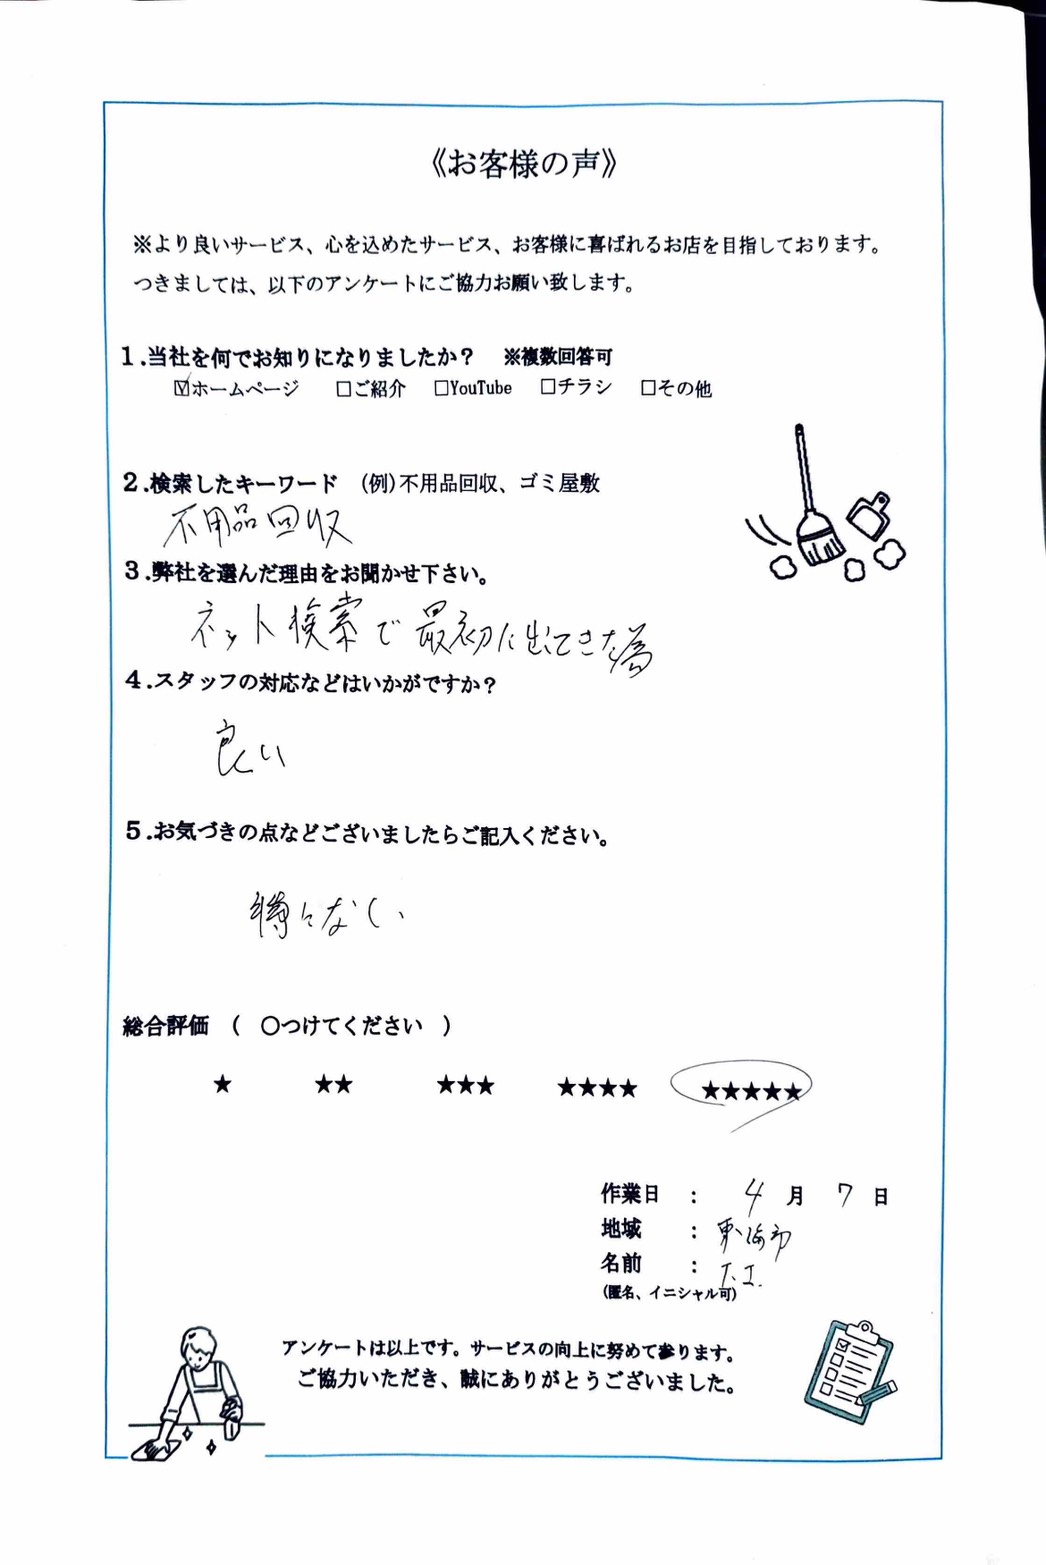 《お客様の声》
※より良いサービス、心を込めたサービス、お客様に喜ばれるお店を目指しております。
つきましては、以下のアンケートにご協力お願い致します。
1.当社を何でお知りになりましたか？　※複数回答可
☑ホームページ　□ご紹介　□YouTube　□チラシ　□その他
2.検索したキーワード　(例)不用品回収、ゴミ屋敷
不用品回収
3.弊社を選んだ理由をお聞かせ下さい。
ネット検索で最初に出てきた為
4.スタッフの対応などはいかがですか？
良い
5.お気づきの点などございましたらご記入ください。
特々なし、
総合評価　(　〇つけてください　)
★　★★　★★★　★★★★　★★★★★
作業日　：　4　月　7　日
地域　：　東海市
名前　：　T.I.
(匿名、イニシャル可)
アンケートは以上です。サービスの向上に努めて参ります。
ご協力いただき、誠にありがとうございました。